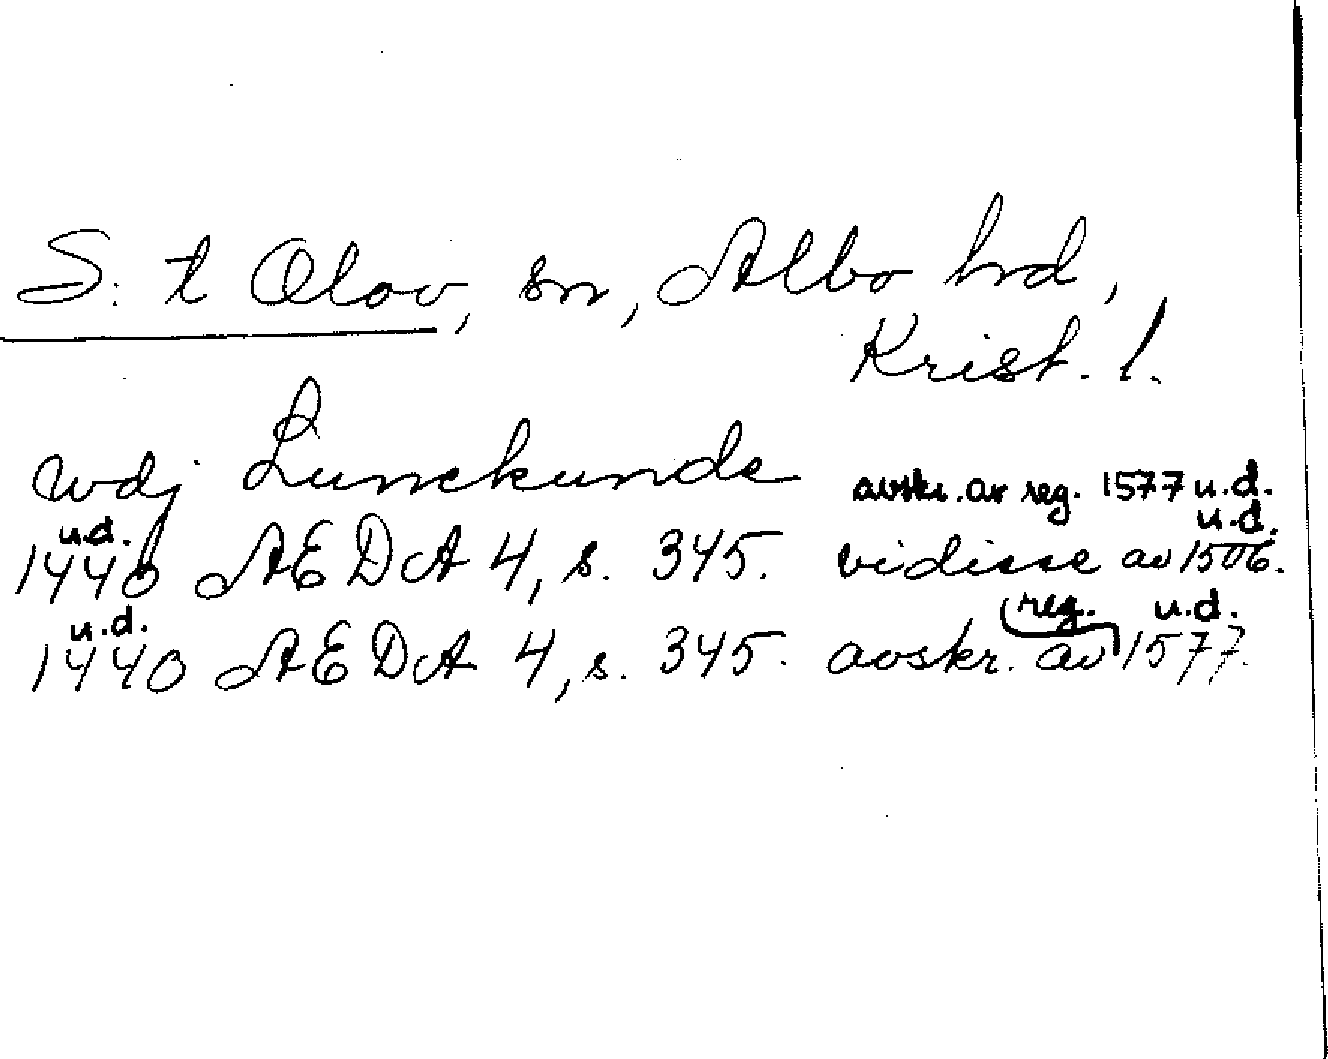 S:t Olov, sn, Albo hrd,
Krist. l.
wdj Lunckunde
avskr. av reg. 1577 u.d.
u.d. u.d.
1440 AEDA 4, s. 345. vidisse av 1506.
u.d. reg. u.d.
1440 AEDA 4, s. 345. avskr. av 1577.